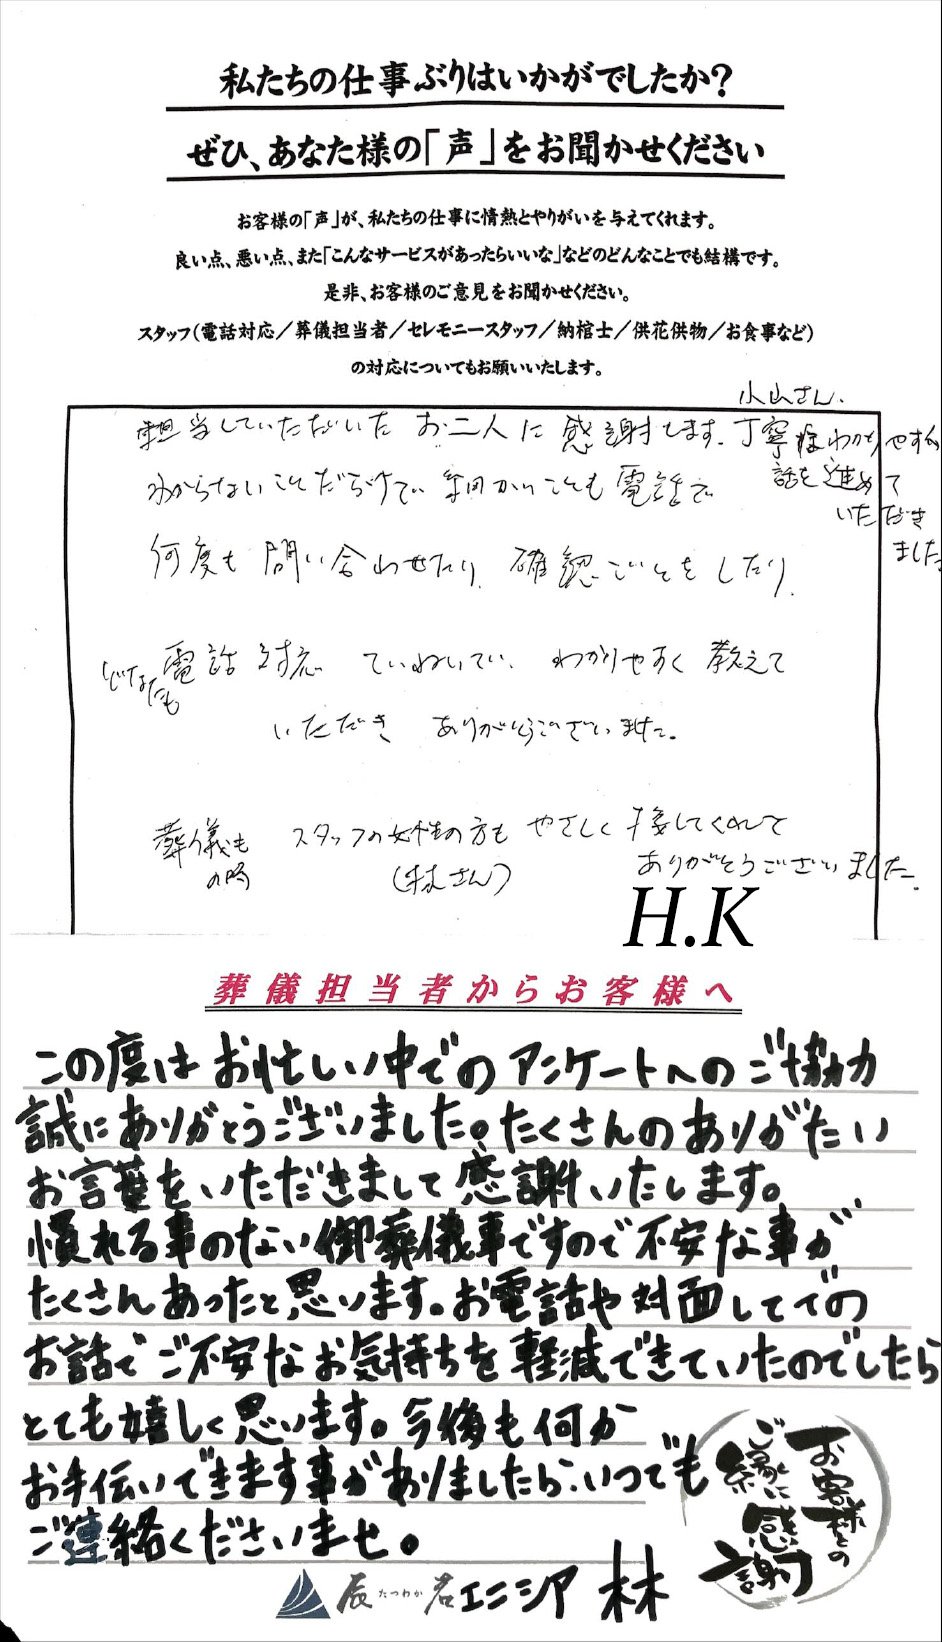 私たちの仕事ぶりはいかがでしたか?
ぜひ、あなた様の「声」をお聞かせください
お客様の「声」が、私たちの仕事に情熱とやりがいを与えてくれます。
良い点、悪い点、また「こんなサービスがあったらいいな」などのどんなことでも結構です。
是非、お客様のご意見をお聞かせください。
スタッフ(電話対応/葬儀担当者/セレモニースタッフ/納棺士/供花供物/お食事など)
の対応についてもお願いいたします。
担当していただいた お二人に 感謝します。
小山さん、
丁寧 わかりやすく
話を進めて
いただき
ました。
わからないことだらけで 細かいことも 電話で
何度も 問い合わせたり、確認ごとをしたり、
どなたも 電話対応 ていねいで、わかりやすく 教えて
いただき ありがとうございました。
葬儀も
の時
スタッフの女性の方も やさしく 接してくれて
(林さん) ありがとうございました。
H.K
葬儀担当者からお客様へ
この度は お忙しい中でのアンケートへのご協力
誠にありがとうございました。たくさんのありがたい
お言葉をいただきまして感謝いたします。
慣れる事のない御葬儀事ですので不安な事が
たくさんあったと思います。お電話や対面してでの
お話でご不安なお気持ちを軽減できていたのでしたら
とても嬉しく思います。今後も何か
お手伝いできます事がありましたら、いつでも
ご連絡くださいませ。
お客様との
ご縁に
感謝
辰たつわか若 エニシア 林